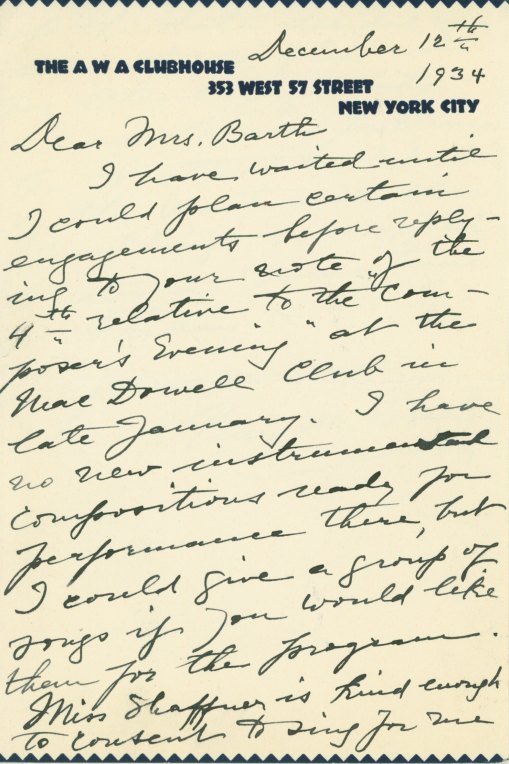 December 12th
1934
THE A W A CLUBHOUSE
353 WEST 57 STREET
NEW YORK CITY
Dear Mrs. Barth
I have waited until
I could plan certain
engagements before reply-
ing to your note of the
4th relative to the "Com-
poser's Evening" at the
MacDowell Club in
late January. I have
no new instrumental
compositions ready for
performance there, but
I could give a group of
songs if you would like
them for the program.
Miss Shaffner is kind enough
to consent to sing for me